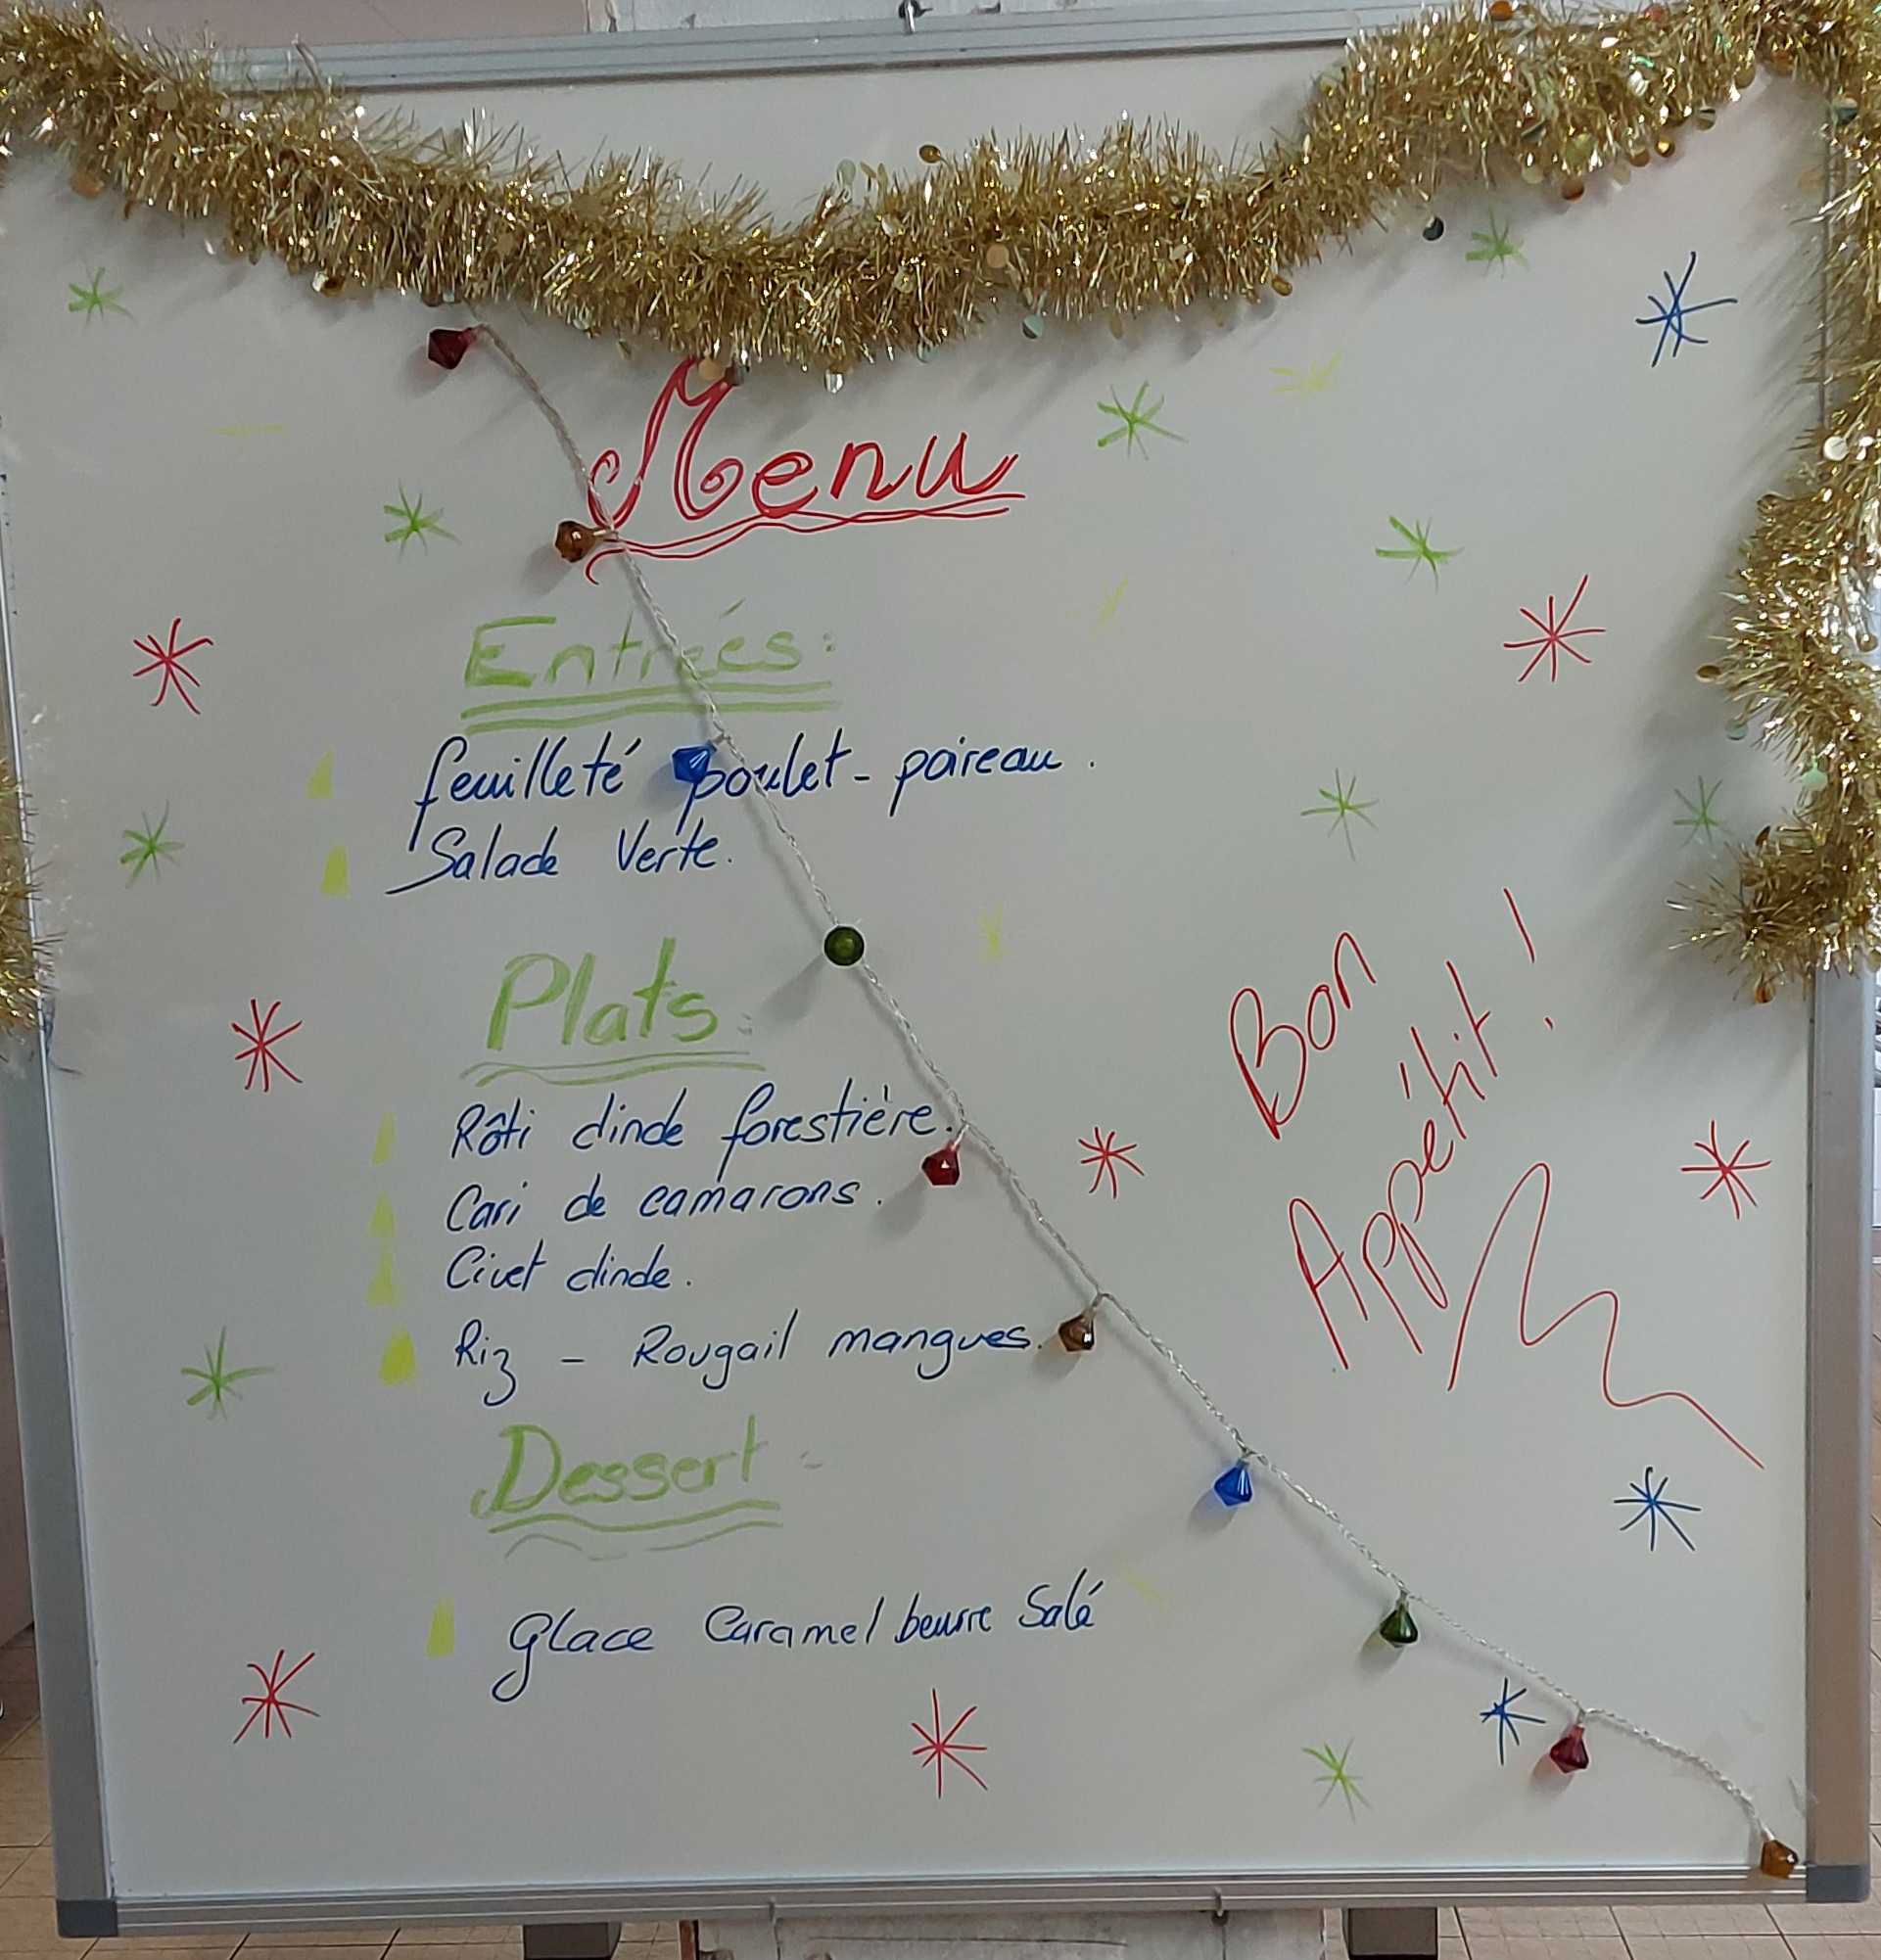 Menu
Entrées:
feuilleté poulet - poireau.
Salade Verte.
Plats:
Rôti dinde forestière.
Cari de camarons.
Civet dinde.
Riz - Rougail mangues.
Dessert:
Glace Caramel beurre Salé
Bon
Appétit!